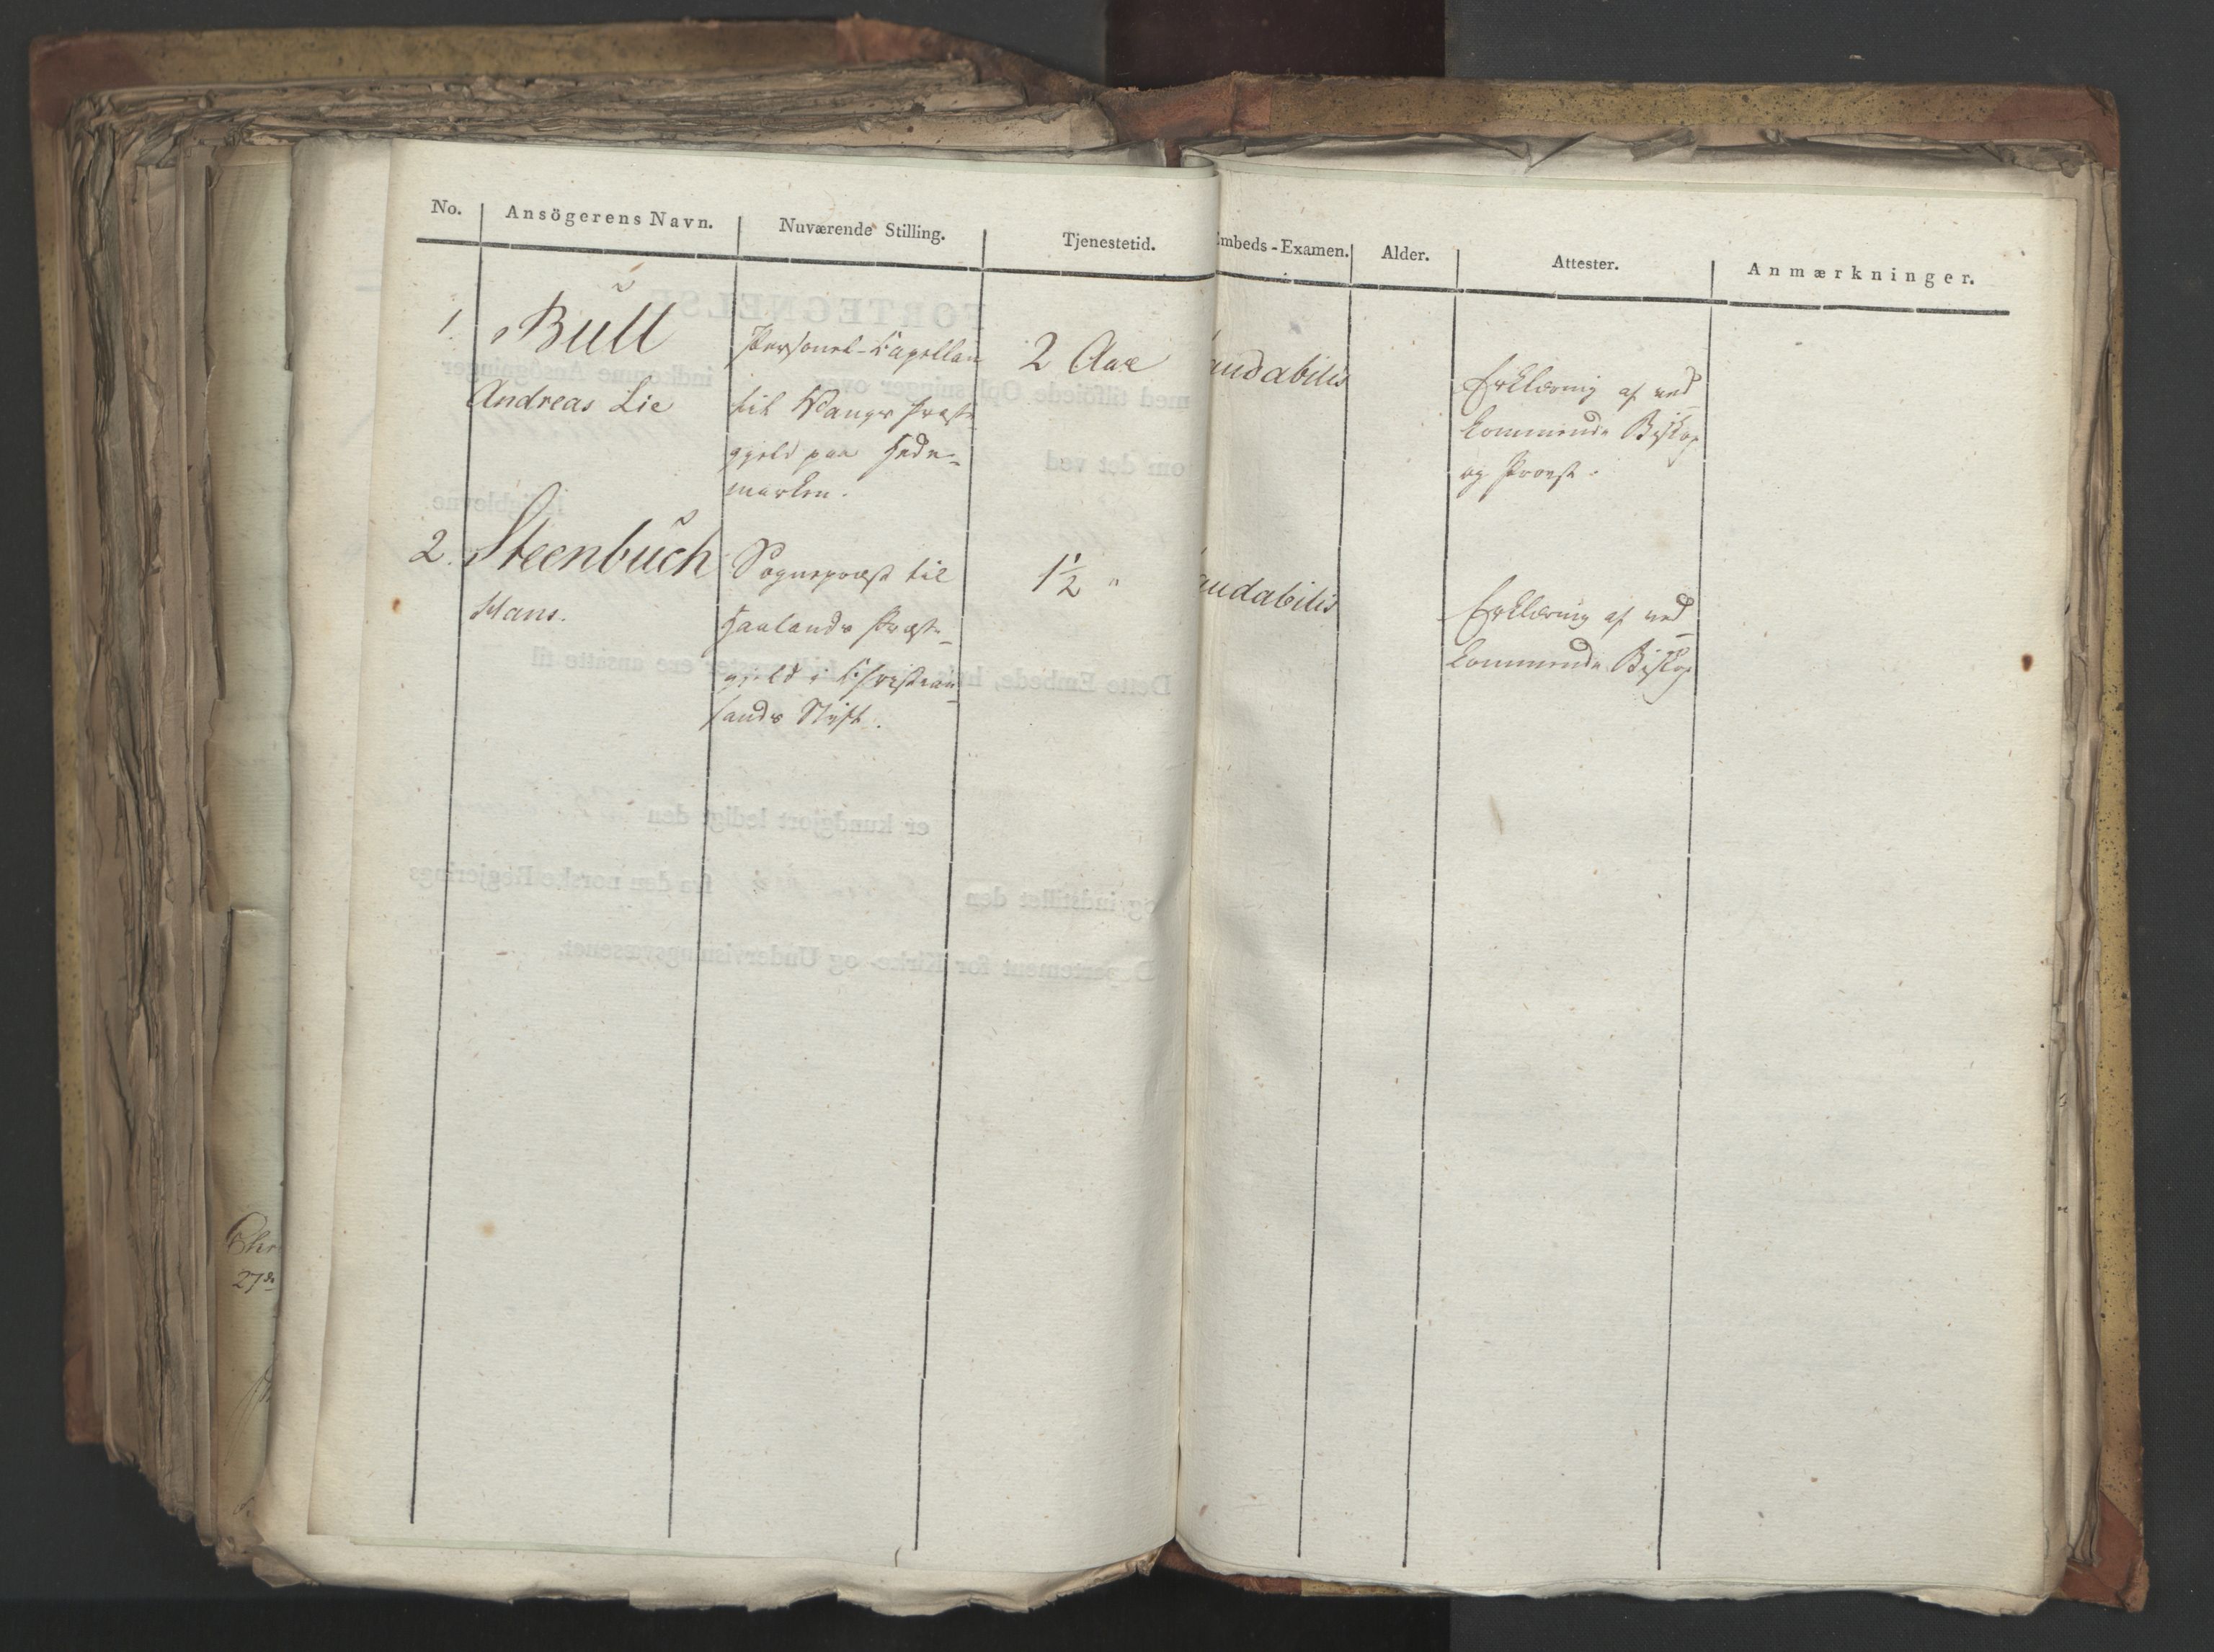 No. Ansögerens Navn. Nuværende Stilling. Tjenestetid. Embeds-Examen. Alder. Attester. Anmærkninger.
1. Bull
Andreas Lie
Personel-Capellan
til Wangs Præste-
gjeld paa Hede-
marken.
2 Aar
audabilis
Erklæring af ved-
kommende Biskop
og Provst.
2. Steenbuch
Hans.
Sognepræst til
Haalands Præste-
gjeld i Christian-
sands Stift.
1½ "
audabilis
Erklæring af ved-
kommende Biskop
Chr
27de